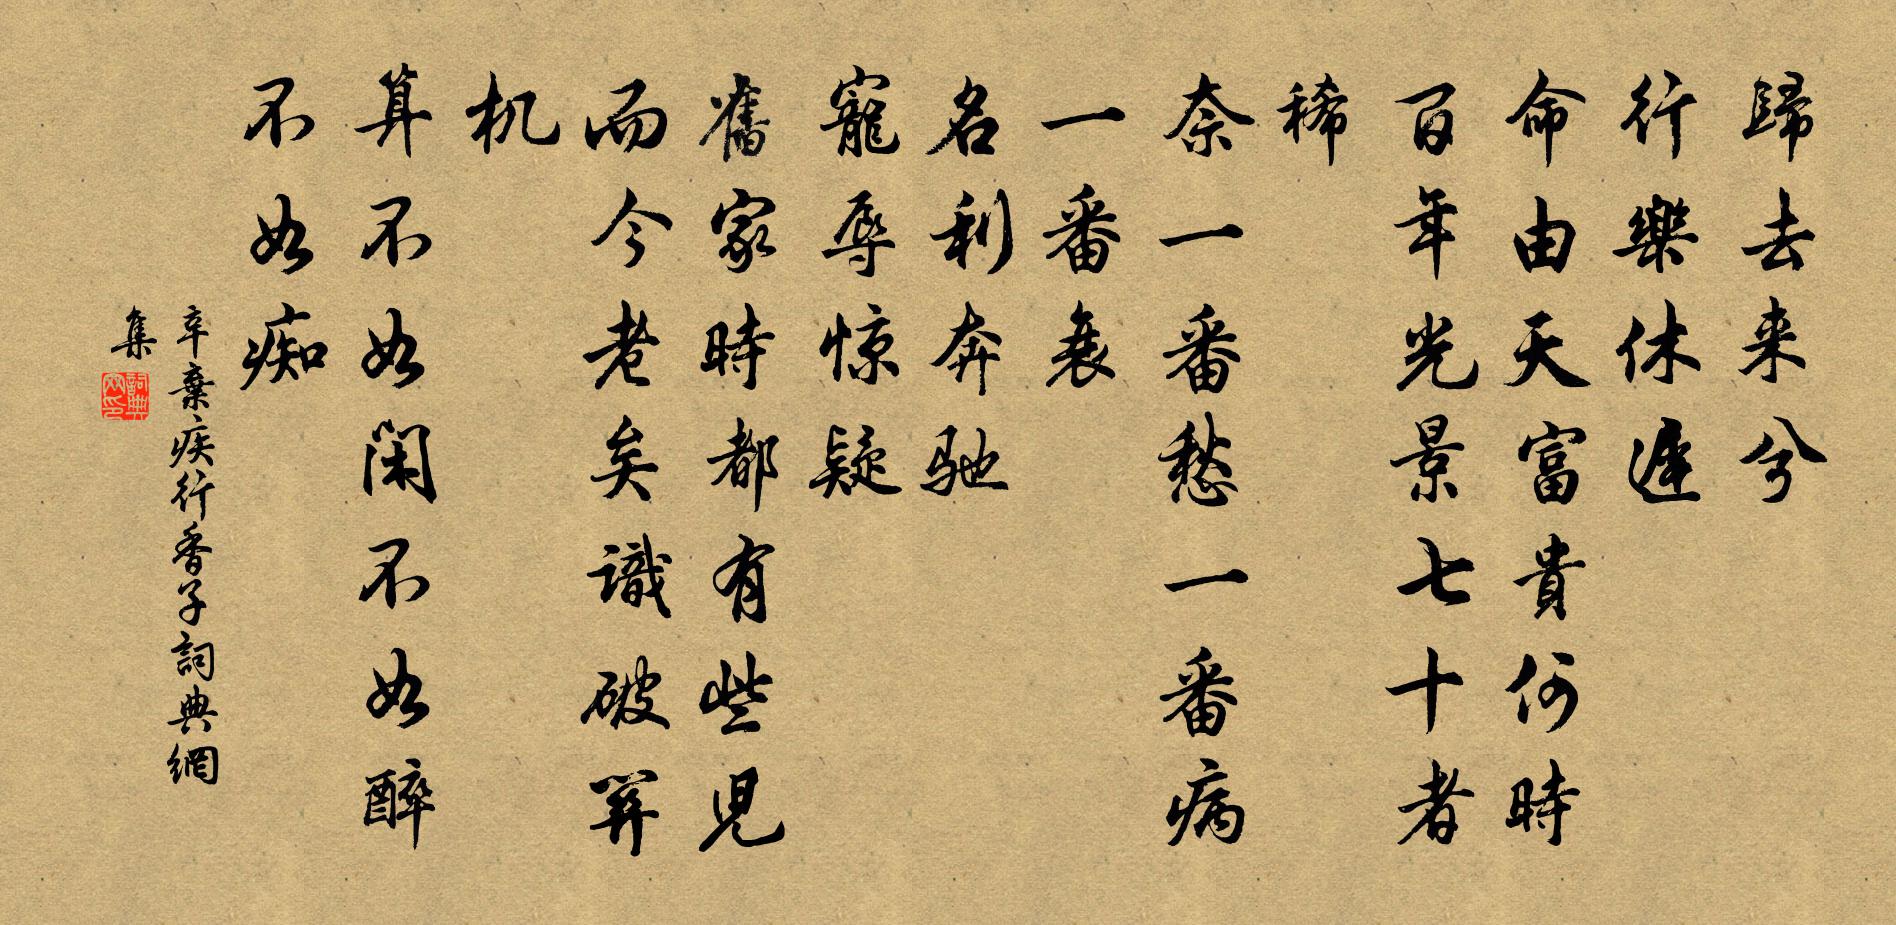 歸去来兮
行樂休遲
命由天富貴何時
百年光景七十者
稀
奈一番愁一番病
一番衰
名利奔馳
寵辱惊疑
舊家時都有些児
而今老矣識破関
机
算不如閑不如醉
不如痴
辛棄疾行香子詞典網
集
詞典網印